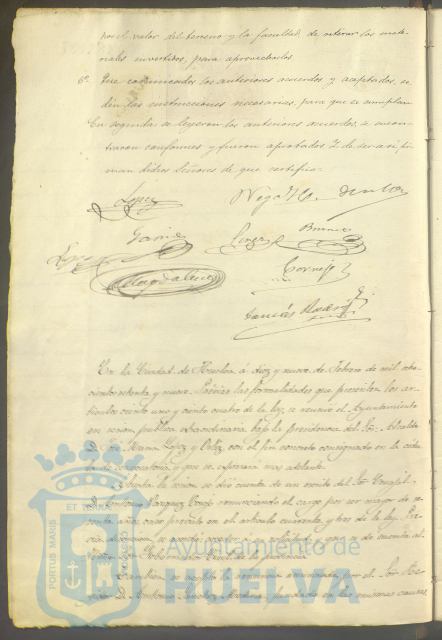 por el valor del terreno y la facultad de retirar los mate-
riales invertidos, para aprovecharlos
6º Que comunicados los anteriores acuerdos y aceptados, se
den las instrucciones necesarias, para que se cumplan
En seguida se leyeron los anteriores acuerdos, se encon-
traron conformes y fueron aprobados. Y de ser así, fir-
man dichos Señores de que certifico.
Lopez
Garcia
Lopez
Cornejo
En la Ciudad de Huelva á diez y nueve de Febrero de mil ocho
cientos setenta y nueve. Prévias las formalidades que prescriben los ar-
tículos ciento uno y ciento cuatro de la ley, se reunió el Ayuntamiento
en sesion pública extraordinaria bajo la presidencia del Sr. Alcalde
D. José Maria Lopez y Ortiz, con el fin concreto consignado en la cédu-
la de convocatoria y que se expresará mas adelante.
Abierta la sesion se dió cuenta de un escrito del Sor Concejal
D. Antonio renunciando el cargo por ser mayor de se-
senta años, caso previsto en el artículo cuarenta y tres de la ley.
Tambien se la renuncia por el Sor
D. Antonio fundada en las mismas causas
ET TERRÆ
PORTUS MARIS
Ayuntamiento de
HUELVA